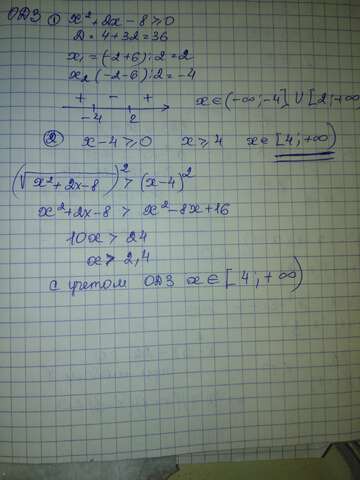 ОДЗ ① x² + 2x - 8 ≥ 0
D = 4 + 32 = 36
x₁ = (-2+6):2 = 2
x₂ (-2-6):2 = -4
+ - +
-4 2
x ∈ (-∞; -4] ∪ [2; +∞
② x - 4 ≥ 0 x ≥ 4 x ∈ [4; +∞)
(√x² + 2x - 8)² > (x-4)²
x² + 2x - 8 > x² - 8x + 16
10x > 24
x > 2,4
с учетом ОДЗ x ∈ [4; +∞)